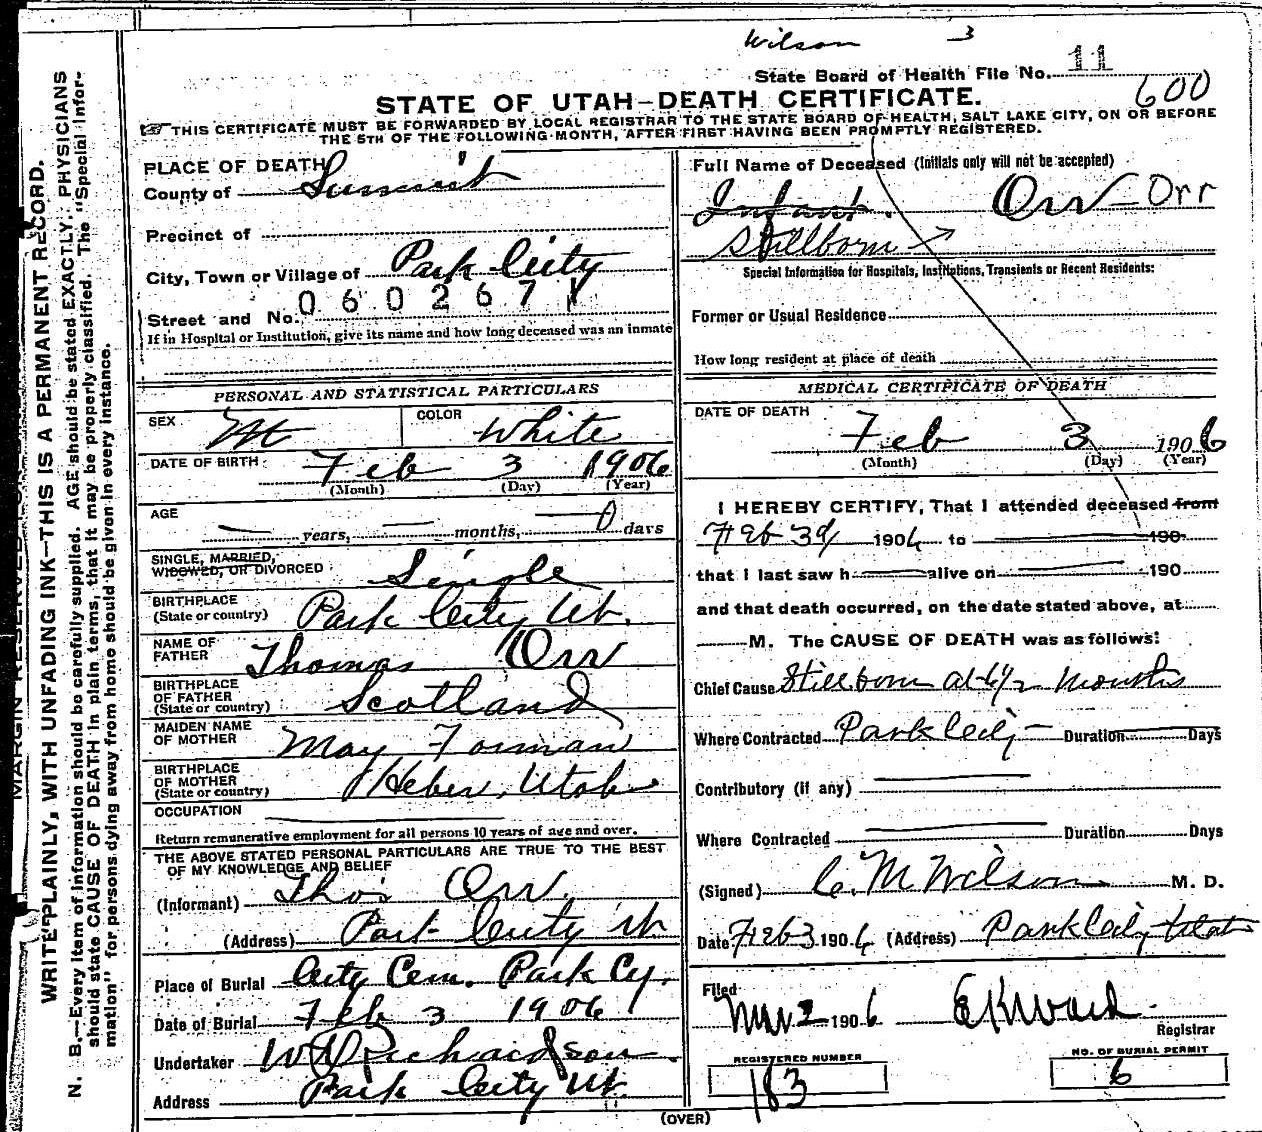 Wilson 3
State Board of Health File No. 11
600
STATE OF UTAH—DEATH CERTIFICATE.
☞ THIS CERTIFICATE MUST BE FORWARDED BY LOCAL REGISTRAR TO THE STATE BOARD OF HEALTH, SALT LAKE CITY, ON OR BEFORE
THE 5TH OF THE FOLLOWING MONTH, AFTER FIRST HAVING BEEN PROMPTLY REGISTERED.
PLACE OF DEATH
County of Summit
Precinct of
City, Town or Village of Park City
0602671
Street and No.
If in Hospital or Institution, give its name and how long deceased was an inmate
Full Name of Deceased (Initials only will not be accepted)
Infant. Orr - Orr
Stillborn →
Special Information for Hospitals, Institutions, Transients or Recent Residents:
Former or Usual Residence
How long resident at place of death
PERSONAL AND STATISTICAL PARTICULARS
SEX M
COLOR White
DATE OF BIRTH: Feb 3 1906
(Month) (Day) (Year)
AGE
— years, — months, — 0 days
SINGLE, MARRIED,
WIDOWED, OR DIVORCED Single
BIRTHPLACE
(State or country) Park City Ut.
NAME OF
FATHER Thomas Orr
BIRTHPLACE
OF FATHER
(State or country) Scotland
MAIDEN NAME
OF MOTHER May Forman
BIRTHPLACE
OF MOTHER
(State or country) Heber, Utah
OCCUPATION
Return remunerative employment for all persons 10 years of age and over.
THE ABOVE STATED PERSONAL PARTICULARS ARE TRUE TO THE BEST
OF MY KNOWLEDGE AND BELIEF
(Informant) Tho's Orr.
(Address) Park City Ut
Place of Burial City Cem. Park Cy.
Date of Burial Feb 3 1906
Undertaker W D Richardson.
Address Park City Ut.
MEDICAL CERTIFICATE OF DEATH
DATE OF DEATH
Feb 3 1906
(Month) (Day) (Year)
I HEREBY CERTIFY, That I attended deceased from
Feb 3d 1906 to — 190
that I last saw h — alive on — 190
and that death occurred, on the date stated above, at
M. The CAUSE OF DEATH was as follows:
Chief Cause Stillborn at 6½ Months
Where Contracted Park City — Duration — Days
Contributory (if any) —
Where Contracted — Duration Days
(Signed) C. M Wilson M. D.
Date Feb 3 1906 (Address) Park City Utah
Filed
Mar 2 1906 E K Ward.
Registrar
REGISTERED NUMBER
183
NO. OF BURIAL PERMIT
6
(OVER)
MARGIN RESERVED
WRITE PLAINLY, WITH UNFADING INK—THIS IS A PERMANENT RECORD.
N. B.—Every item of information should be carefully supplied. AGE should be stated EXACTLY. PHYSICIANS
should state CAUSE OF DEATH in plain terms, that it may be properly classified. The "Special Infor-
mation" for persons dying away from home should be given in every instance.